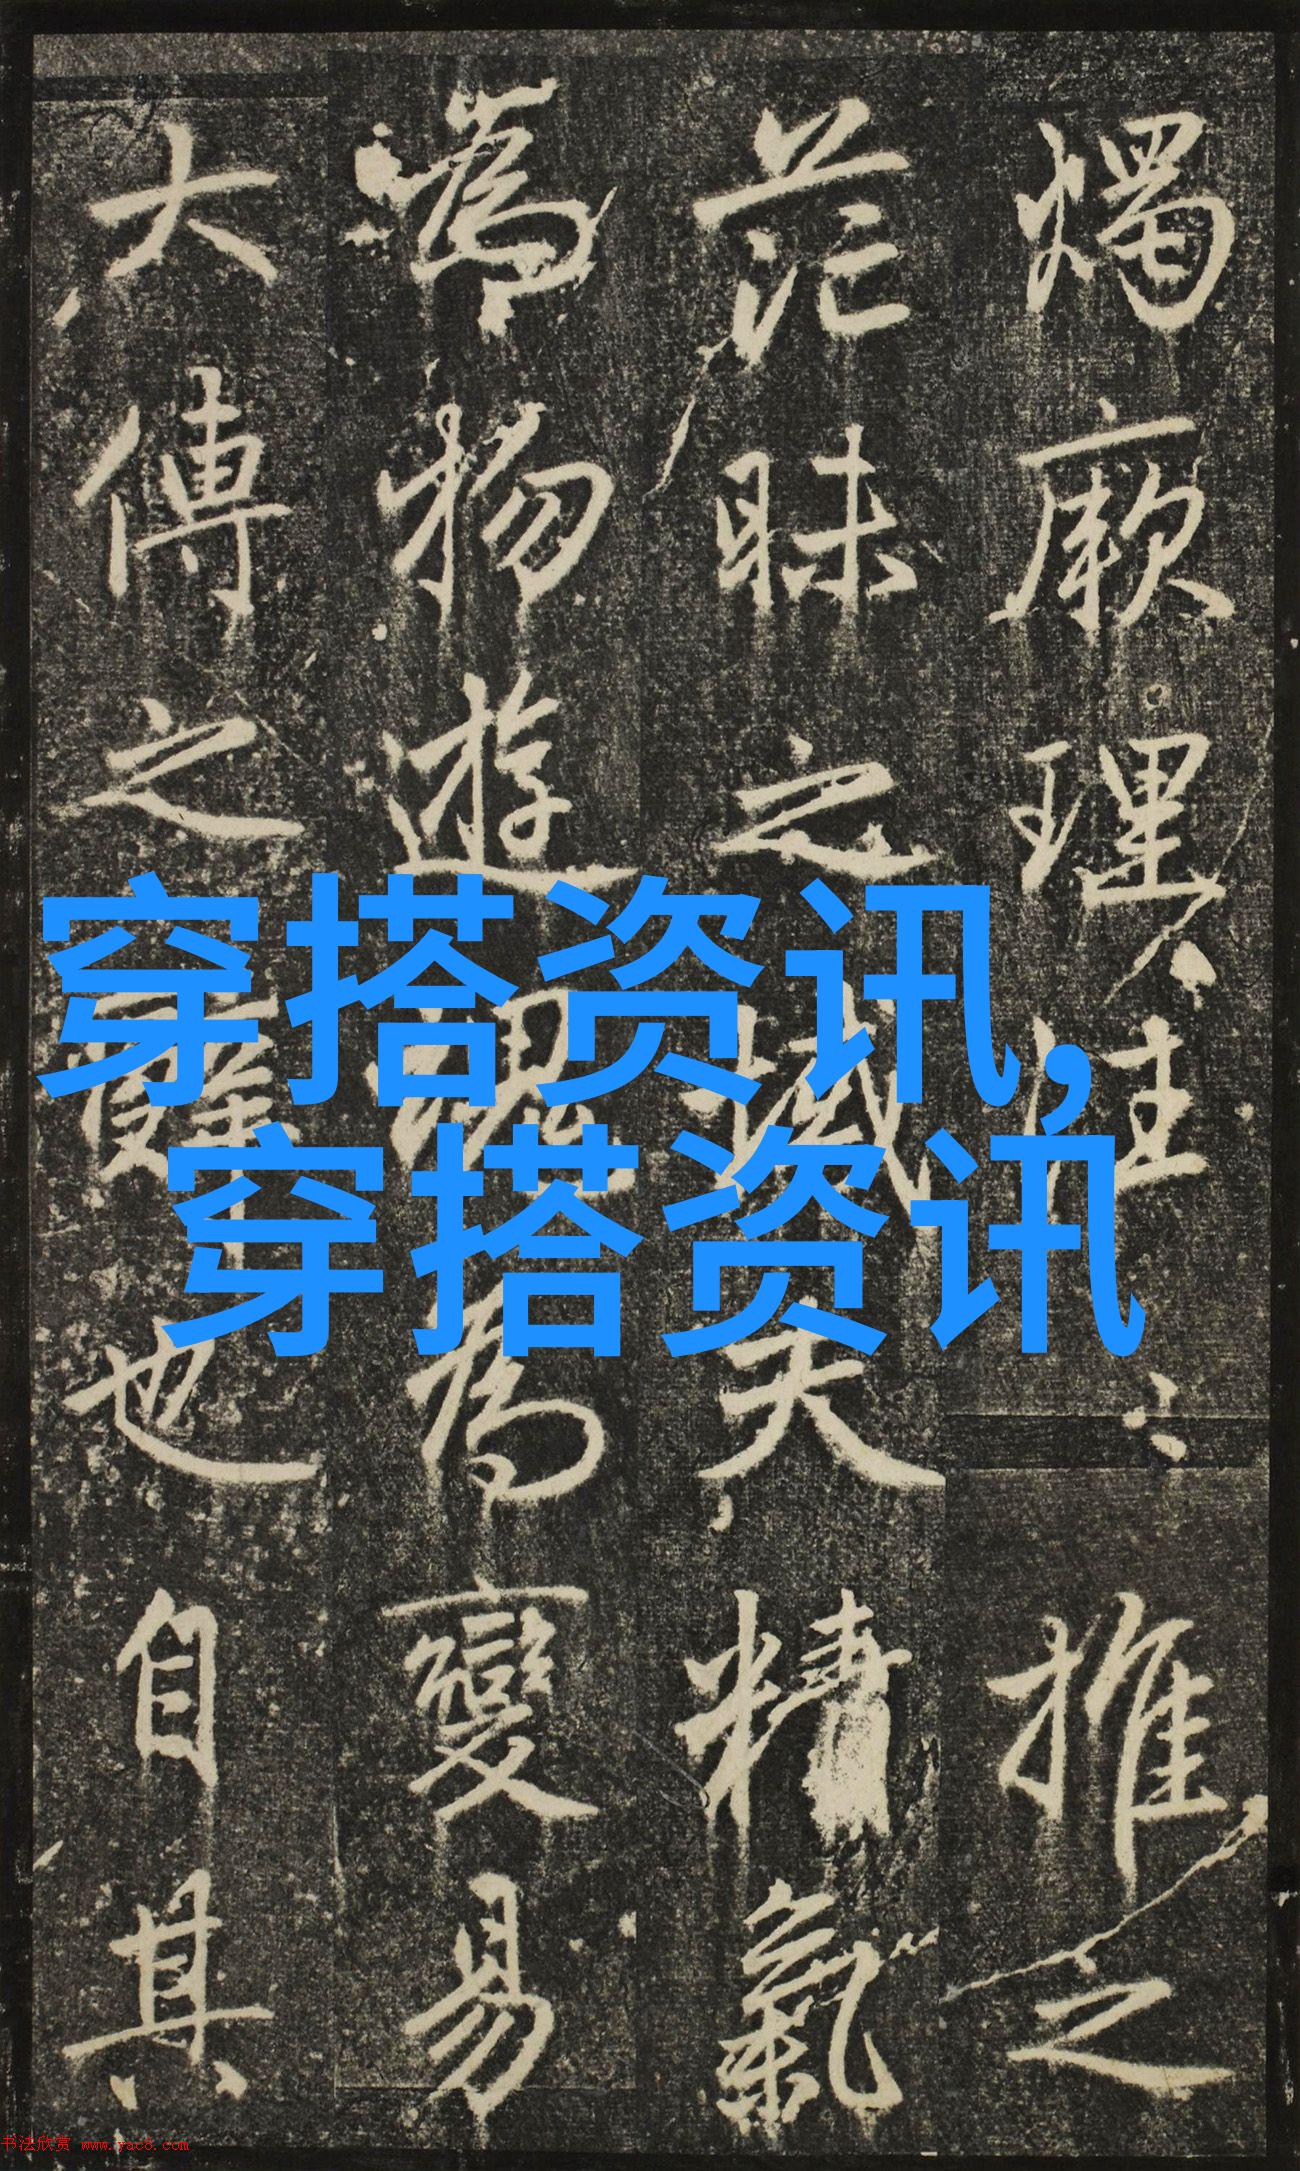 燭厥理推之
茫昧之域夫精氣
為物遊魂為變易
大傳之辭也自其
穿搭资讯,
穿搭资讯
书法欣赏 www.yac8.com